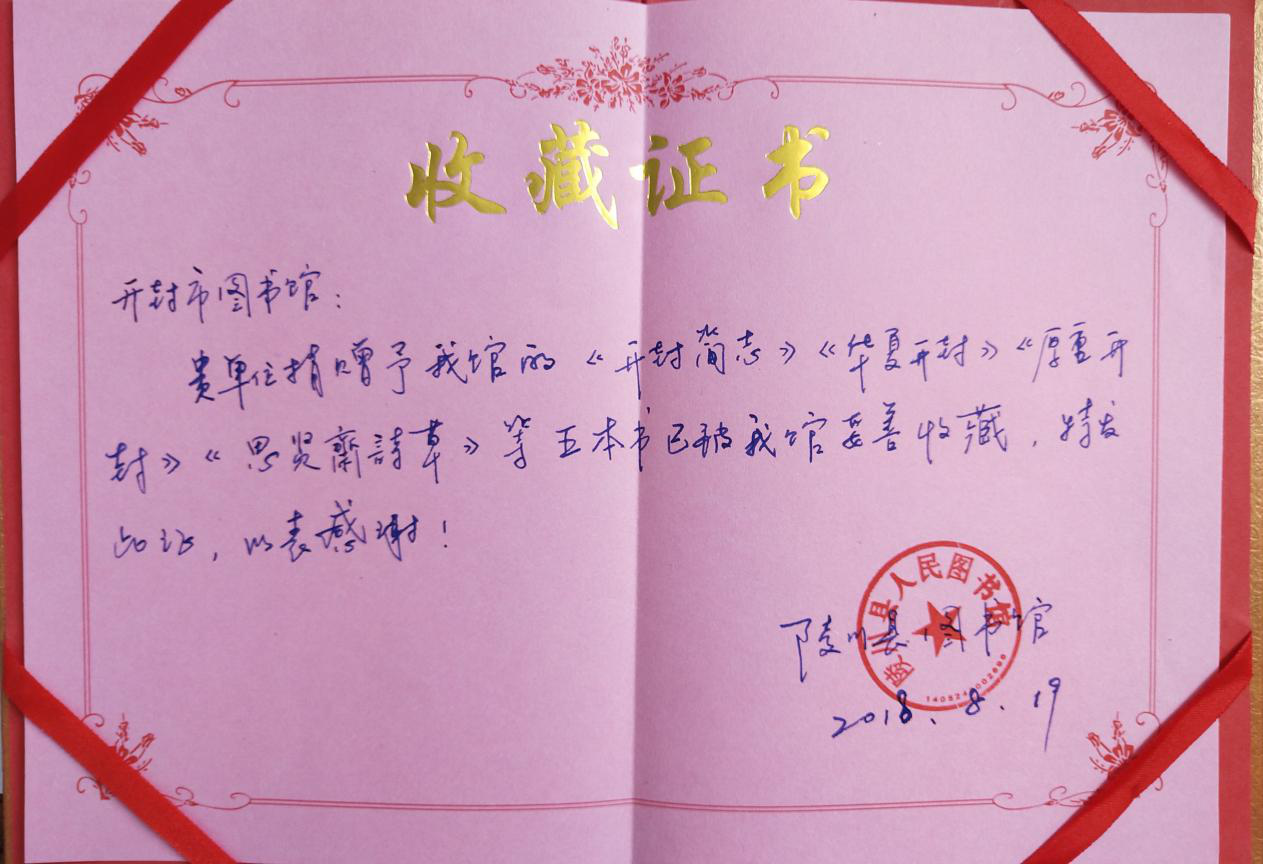 收藏证书
开封市图书馆：
贵单位捐赠予我馆的《开封简志》《华夏开封》《厚重开
封》《思贤齋詩草》等五本书已被我馆妥善收藏，特发
此证，以表感谢！
陵川县人民图书馆
陵川县图书馆
2018.8.19